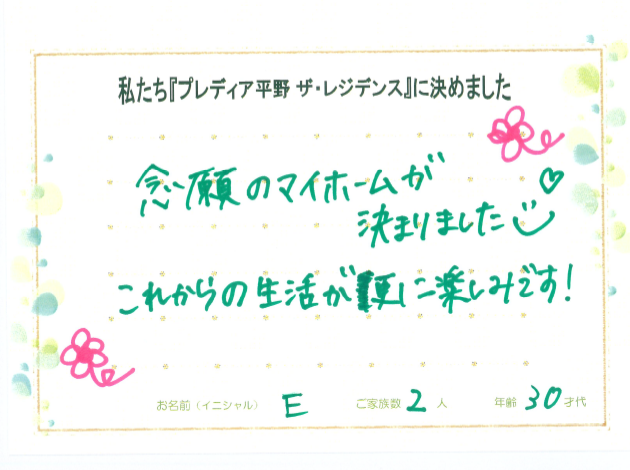 私たち『プレディア平野 ザ・レジデンス』に決めました
念願のマイホームが
決まりました
これからの生活が更に楽しみです!
お名前（イニシャル） E ご家族数 2 人 年齢 30 才代